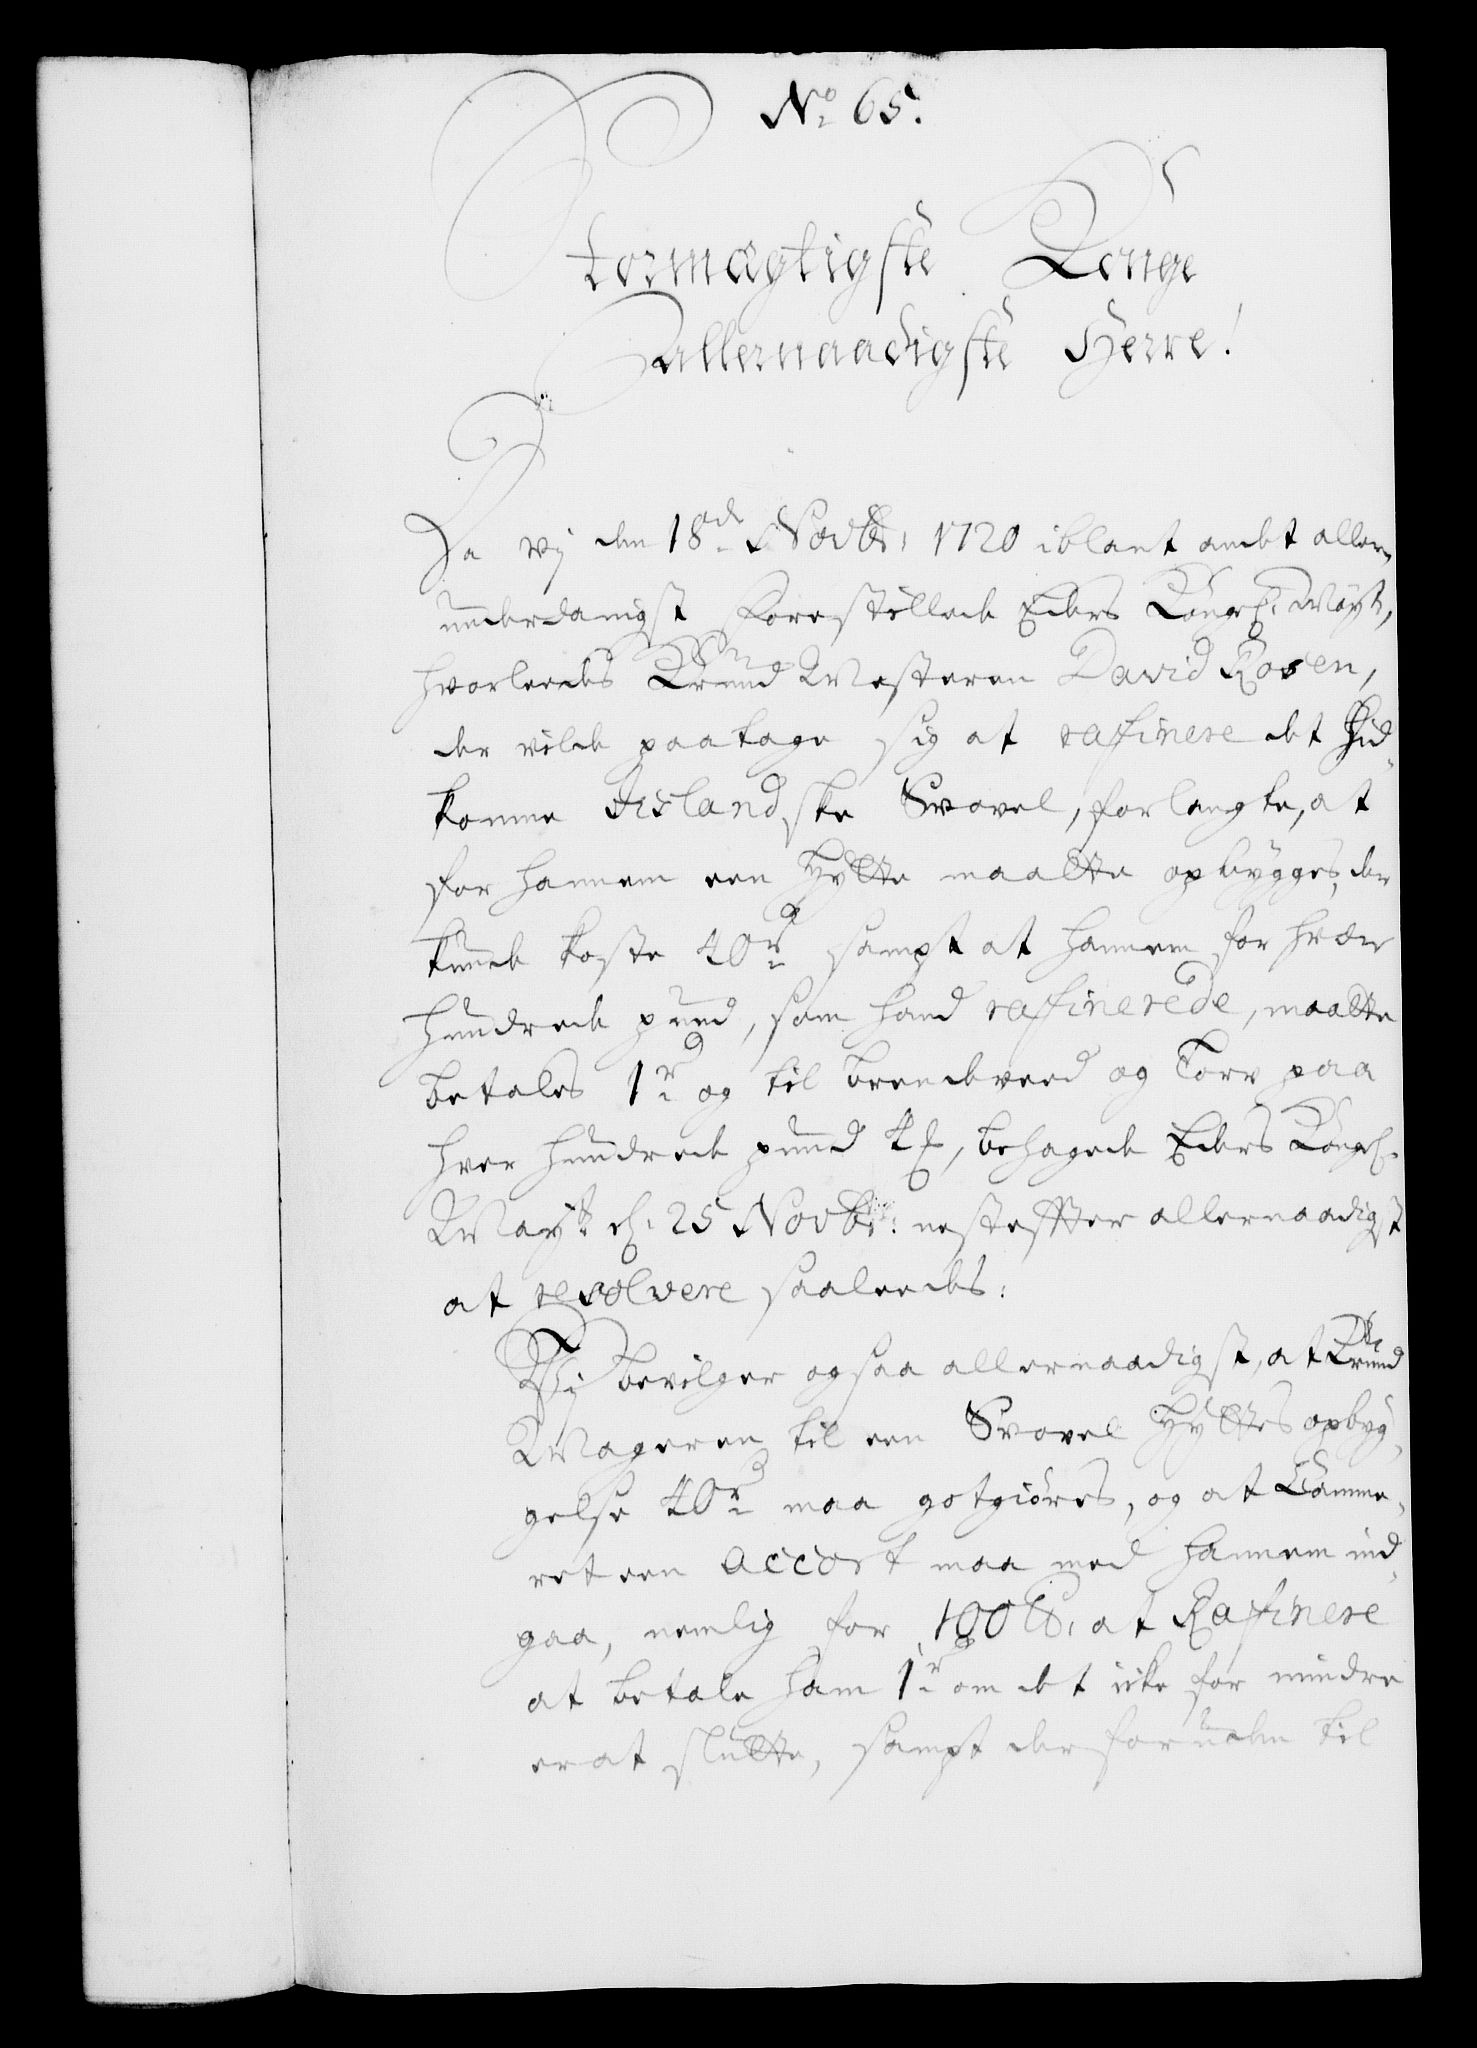 No. 65.
Stormægtigste Konge
allernaadigste Herre!
Da vij den 18de Novbr: 1720 iblant andet aller-
underdanigst forestillede Eders Kongl: Mayt,
hvorledes Krud Mesteren David Rosen,
der vilde paatage sig at raffinere det hid-
komne Iislandske Svovel, forlangte, at
for hannem een Hÿtte maatte opbÿgges, der
kunde koste 40 rd sampt at hannem for hver
hundrede pund, som hand raffinerede, maatte
betales 1 rd og til brendeveed og Torv paa
hver hundrede pund 4 s, behagede Eders Kongl.
Mayt d: 25 Novbr: nesteffter allernaadigst
at resolvere saaledes:
Vij bevilger og saa allernaadigst, at Krud
Mageren til een Svovel Hÿttes opbyg-
gelse 40 rd maa gotgiøres, og at Camme-
ret een accort maa med hannem ind-
gaa, nemlig for 100 lb: at Raffinere
at betale ham 1 rd om det icke for mindre
er at slutte, sampt der foruden til